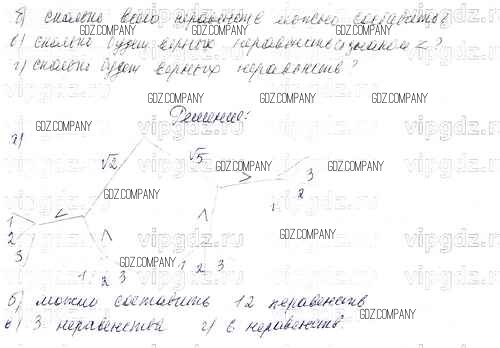 б) сколько всего неравенств можно составить?
в) сколько будет верных неравенств со знаком <?
г) сколько будет верных неравенств?
GDZ.COMPANY GDZ.COMPANY GDZ.COMPANY
vipgdz.ru vipgdz.ru vipgdz.ru
Решение:
GDZ.COMPANY
а)
√2 √5
GDZ.COMPANY GDZ.COMPANY
> 3
GDZ.COMPANY
1 2
1 <
2
3
GDZ.COMPANY
1 2 3 1 2 3
б) можно составить 12 неравенств
GDZ.COMPANY
в) 3 неравенства г) 6 неравенств.